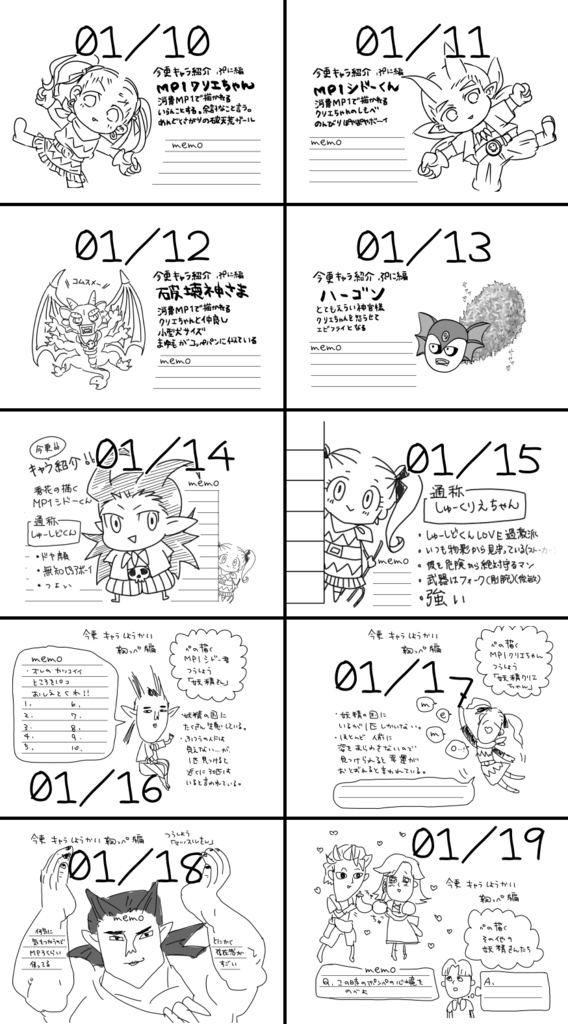 01/10
今更キャラ紹介 ぷに編
MP1クリエちゃん
消費MP1で描かれる
いらんことする。余計なこと言う。
めんどくさがりの破天荒ガール
memo
01/11
今更キャラ紹介 ぷに編
MP1シドーくん
消費MP1で描かれる
クリエちゃんのしもべ
のんびりぽやぽやボーイ
memo
01/12
コムスメ〜
今更キャラ紹介 ぷに編
破壊神さま
消費MP1で描かれる
クリエちゃんと仲良し
小型犬サイズ
まゆ毛がコッペパンに似ている
memo
01/13
今更キャラ紹介 ぷに編
ハーゴン
とてもえらい神官様
クリエちゃんを怒らせて
エビフライとなる
memo
01/14
今更
キャラ紹介!!
香花の描く
MP1シドーくん
通称
しゅーしどくん
・ドヤ顔
・つよい
memo
01/15
通称
しゅーくりえちゃん
・しゅーしどくんLOVE過激派
・いつも物影から見守っている(ストーカー)
・彼を危険から絶対守るマン
・武器はフォーク(削腕)(複数)
・強い
memo
今更 キャラ しょうかい
胸ぺ編
memo
・オレのカッコイイ
ところを10コ
おしえてくれ!!
1. 6.
2. 7.
3. 8.
4. 9.
5. 10.
ペの描く
MP1シドー君
つうしょう
「妖精さん」
・妖精の国に
たくさん生息している。
・ふつうの人には
見えない…が、
1匹見つけると
近くに30匹は
いると言われている。
01/16
今更 キャラ しょうかい
胸ぺ編
ペの描く
MP1クリエちゃん
つうしょう
「妖精クリエ
ちゃん」
01/17
・妖精の国に
いるが1匹しかいない。
・ほとんど人前に
姿をあらわさないので
見つけられると幸運が
おとずれると言われている。
m
e
m
o…
今更 キャラ しょうかい 胸ぺ編
つうしょう
「マッスルさん」
01/18
memo
MPくらい
使ってる
とにかく
すごい
01/19
今更 キャラ しょうかい
胸ぺ編
ペの描く
その他の
妖精さんたち
memo
Q. この時のポンペの心境を
のべよ
A.